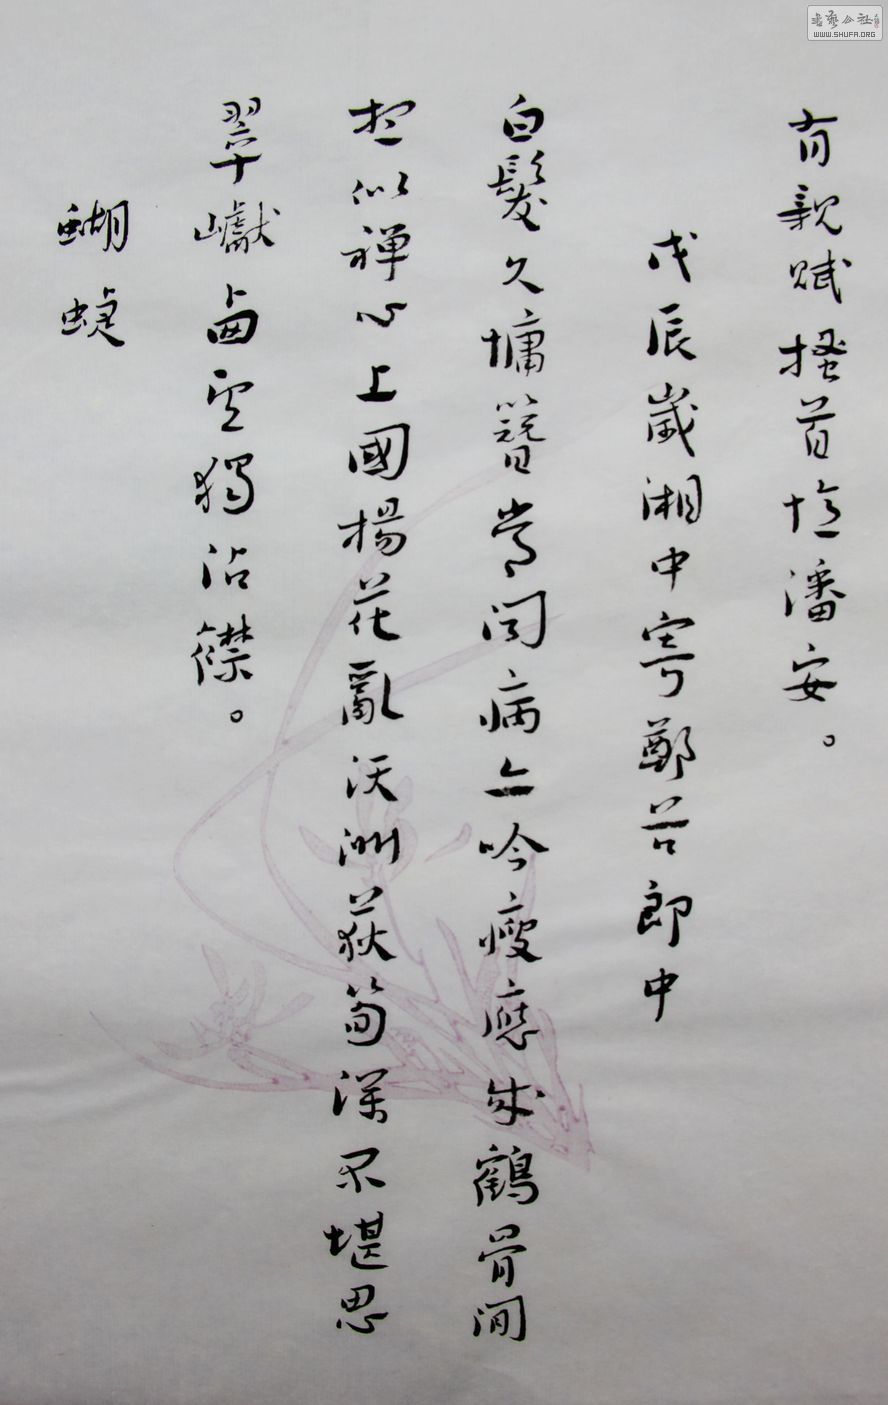 有親賦搔首憶潘安。
戊辰歲湘中寄鄭谷郎中
白髮久慵簪常聞病亦吟瘦應成鶴骨閒
想似禪心上國楊花亂沃洲荻筍深不堪思
翠巘西望獨沾襟。
蝴蝶
書藝公社
WWW.SHUFA.ORG